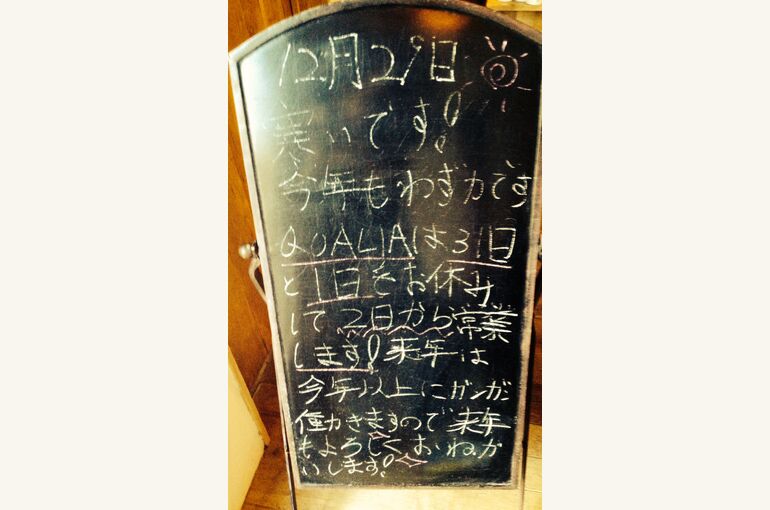 12月29日
寒いです!
今年もわずかです
QUALIAは31日
と1日をお休み
して2日から営業
します!来年は
今年以上にガンガン
働かきますので来年
もよろしくおねが
いします!